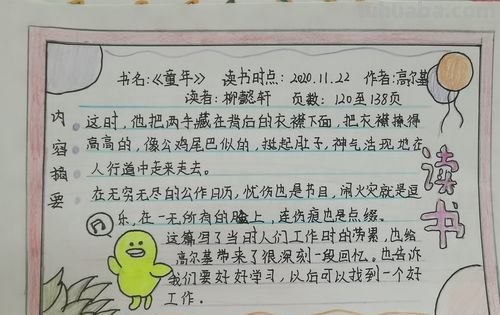 书名:《童年》 读书时点:2020.11.22 作者:高尔基
读者:柳懿轩 页数:120至138页
内容摘要
这时,他把两手藏在背后的衣襟下面,把衣襟撩得
高高的,像公鸡尾巴似的,挺起肚子,神气活现地在
人行道中走来走去。
在无穷无尽的公作日历,忧伤也是节目,闹火灾就是逗
乐,在一无所有的脸上,连伤痕也是点缀。
这篇写了当时人们工作时的劳累,也给
高尔基带来了很深刻一段回忆。也告诉
我们要好好学习,以后可以找到一个好
工作。
读书